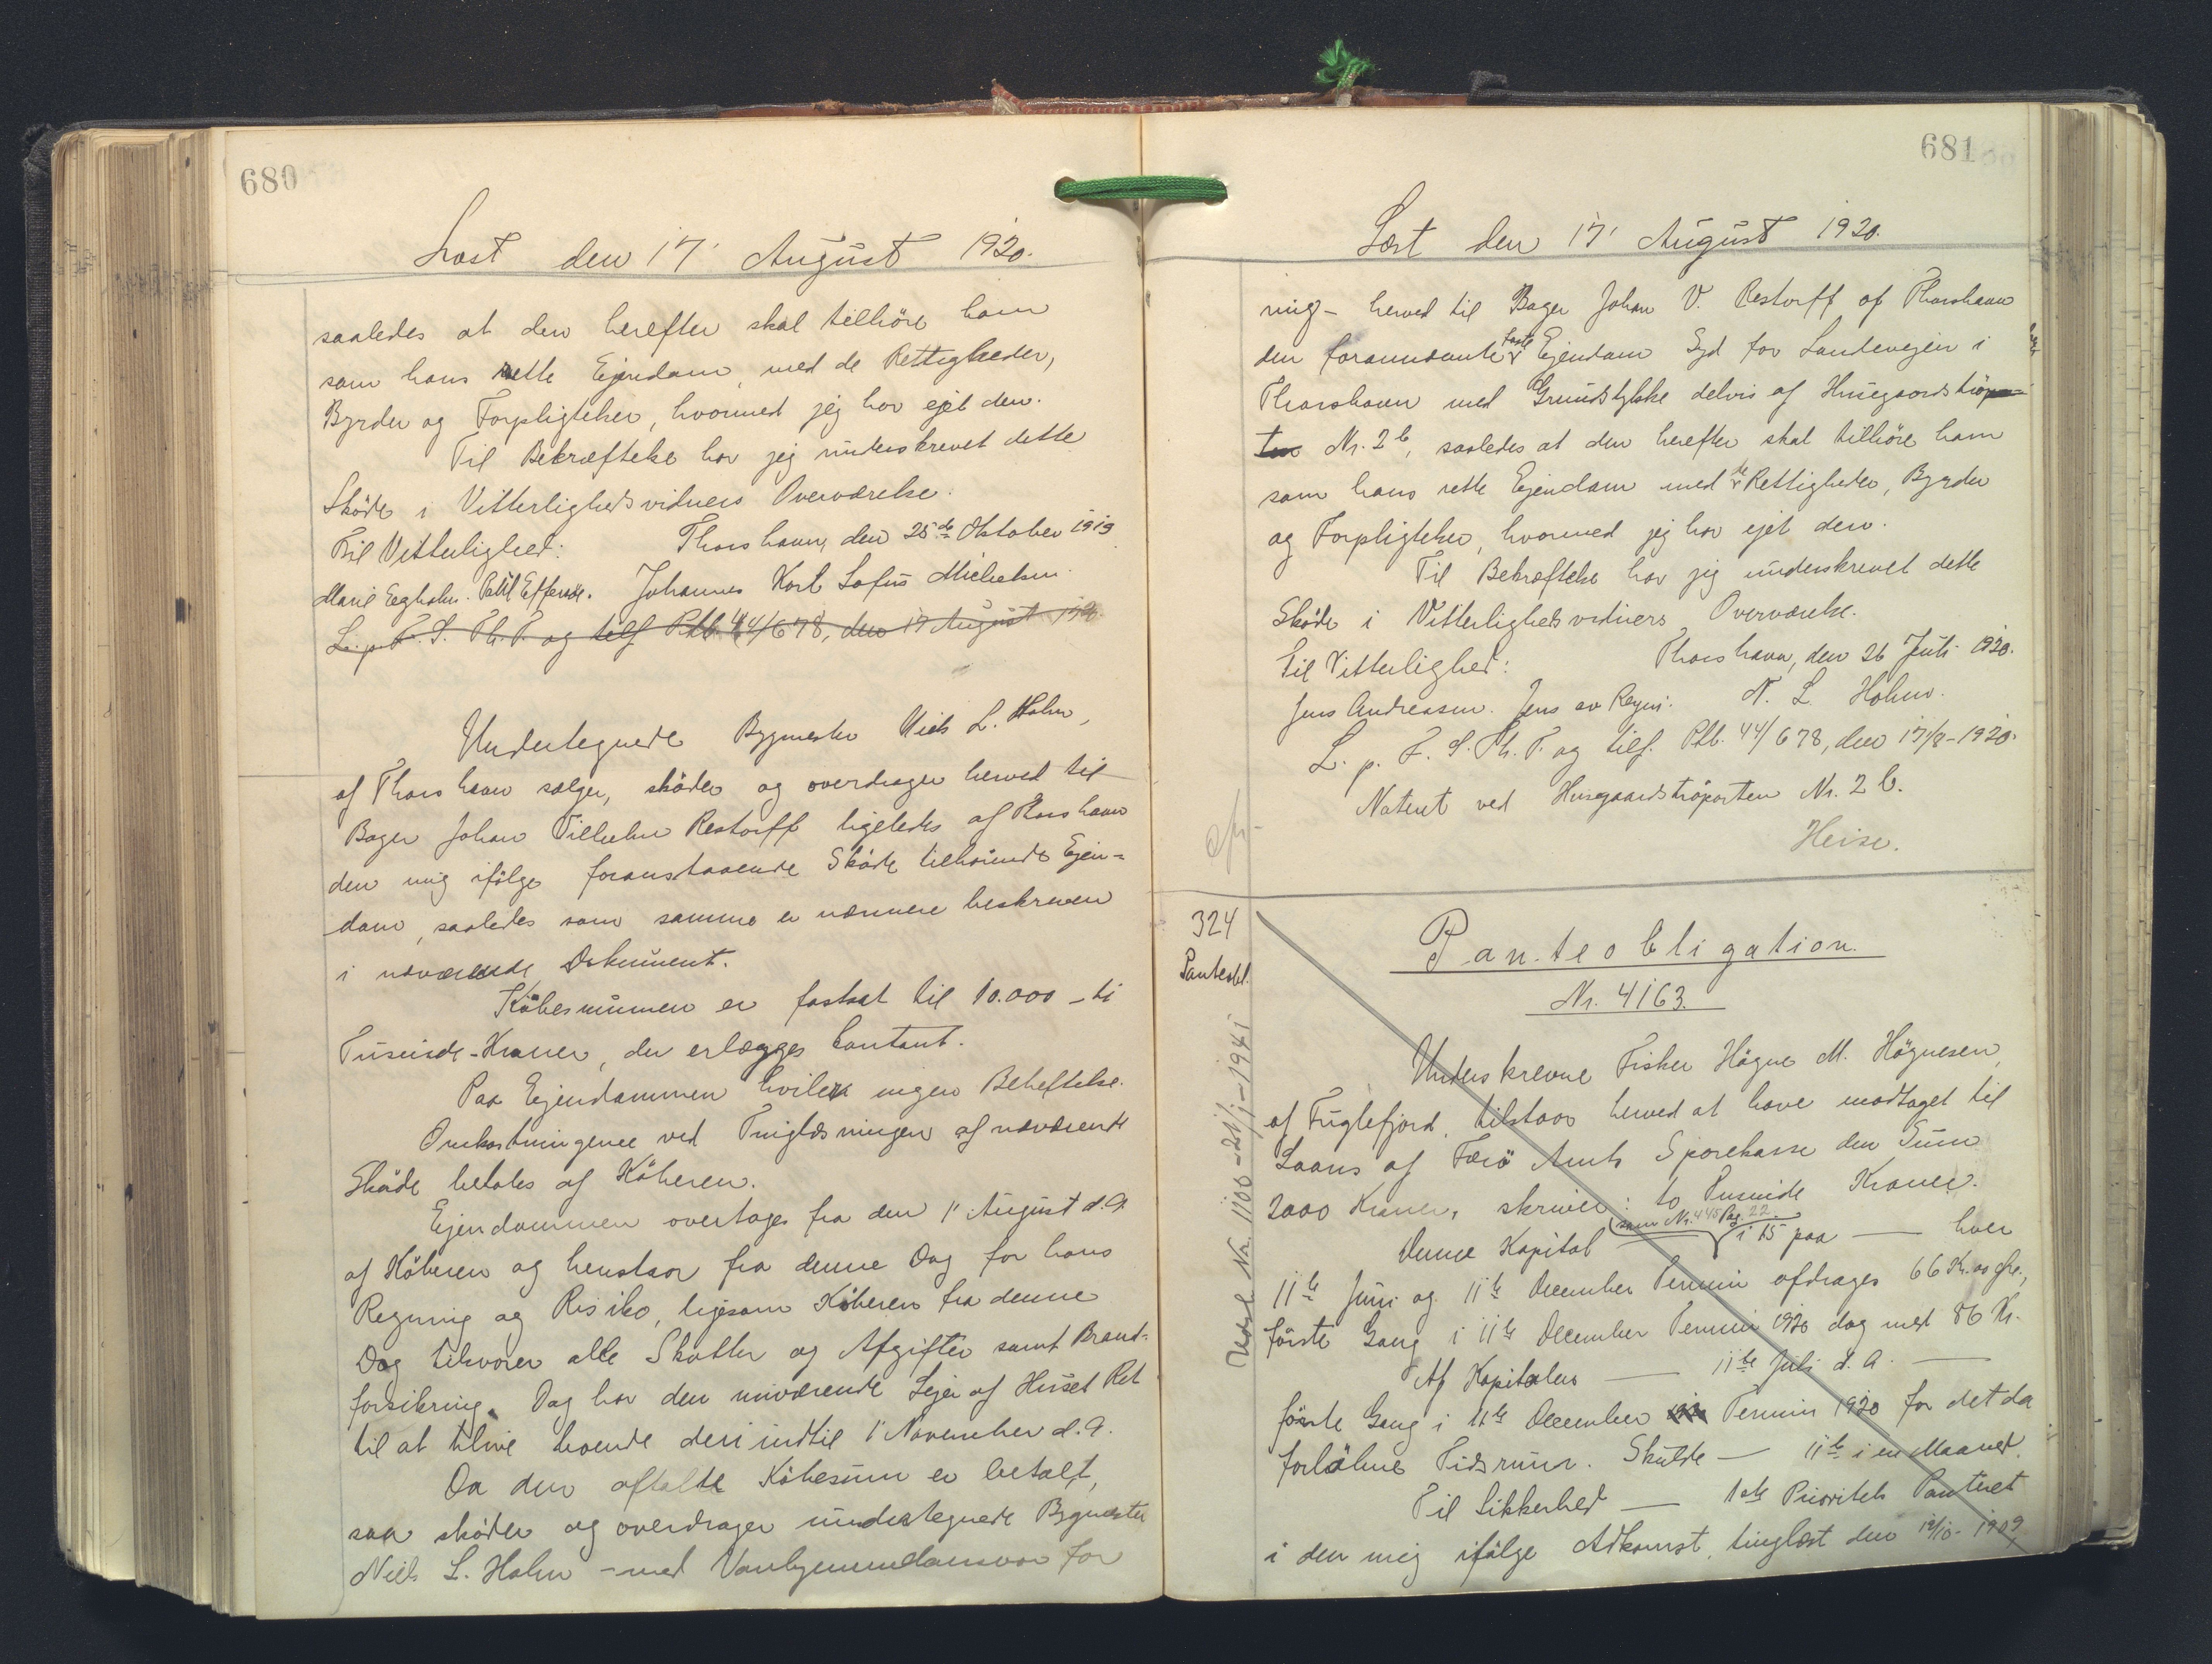 680
Læst den 17' August 1920.
saaledes at den herefter skal tilhöre ham
som hans rette Ejendom, med de Rettigheder,
Byrder og Forpligtelser, hvormed jeg har ejet den.
Til Bekræftelse har jeg underskrevet dette
Sköde i Vitterlighedsvidners Overværelse.
Til Vitterlighed: Thorshavn, den 25de Oktober 1919
Marie Eegholm. Poul Effersöe. Johannes Karl Lofus Michelsen.
L. p. F. S. Th. P. og tilf Ptb. 44/678, den 17 August 1920.
Undertegnede Bygmester Niels L. Holm,
af Thorshavn sælger, sköder og overdrager herved til
Bager Johan Vilhelm Restorff ligeledes af Thorshavn
den mig ifölge foranstaaende Sköde tilhörende Ejen=
dom, saaledes som samme er nærmere beskreven
i nærværende Dokument.
Köbesummen er fastsat til 10.000 - ti
Tusinde - Kroner, der erlægges contant.
Paa Ejendommen hviler ingen Behæftelse.
Omkostningerne ved Tinglæsningen af nærværende
Sköde betales af Köberen.
Ejendommen overtages fra den 1' August d.A.
af Köberen og henstaar fra denne Dag for hans
Regning og Risiko, ligesom Köberen fra denne
Dag tilsvarer alle Skatter og Afgifter samt Brand=
forsikring. Dog har den nuværende Lejer af Huset Ret
til at blive boende deri indtil 1' November d.A.
Da den aftalte Köbesum er betalt,
saa sköder og overdrager undertegnede Bygmester
Niels L. Holm - med Vanhjemmelsansvar for
681
Læst den 17' August 1920.
mig - herved til Bager Johan V. Restorff af Thorshavn
den forannævnte faste Ejendom Syd for Landevejen i
Thorshavn med Grundstykke delvis af Husegaardströ
Nr. 2 b, saaledes at den herefter skal tilhöre ham
som hans rette Ejendom med de Rettigheder, Byrder
og Forpligtelser, hvormed jeg har ejet den.
Til Bekræftelse har jeg underskrevet dette
Sköde i Vitterlighedsvidners Overværelse.
Til Vitterlighed: Thorshavn, den 26 Juli 1920.
Jens Andreasen. Jens av Reyni. N. L. Holm.
L. p. F. S. Th. P. og tilf. Ptb. 44/678, den 17/8-1920.
Noteret ved Husegaardströparten Nr. 2 b.
Heise.
324
Panteobl.
Panteobligation.
Nr. 4163.
Underskrevne Fisker Högne M. Högnesen
af Fuglefjord, tilstaar herved at have modtaget til
Laans af Færö Amts Sparekasse den Sum
2000 Kroner, skriver: to Tusinde Kroner.
(som Nr. 445 Pag. 22.
Denne Kapital i 15 paa — hver
11te Juni og 11te December Termin afdrages 66 Kr. 00 Öre,
förste Gang i 11te December Termin 1920 dog med 86 Kr.
Af Kapitalen — 11te Juli d. A. —
förste Gang i 11te December Termin 1920 for det da
forlöbne Tidsrum. Skulde — 11te i en Maaned.
Til Sikkerhed — 1ste Prioritets Panteret
i den mig ifölge Adkomst, tinglæst den 12/10-1909
Udsl. Nr. 1106 - 21/1-1941